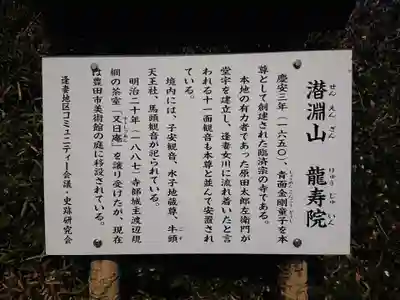 潜淵山 龍寿院
せんえんざん りゅうじゅいん
慶安三年(一六五〇)、青面金剛童子を本
尊として創建された臨済宗の寺である。
本地の有力者であった原田太郎左衛門が
堂宇を建立し、逢妻女川に流れ着いたと言
われる十一面観音も本尊と並んで安置され
ている。
境内には、子安観音、水子地蔵尊、牛頭
天王社、馬頭観音が祀られている。
明治二十年(一八八七)寺部城主渡辺規
綱の茶室「又日庵」を譲り受けたが、現在
は豊田市美術館の庭に移設されている。
逢妻地区コミュニティー会議・史跡研究会